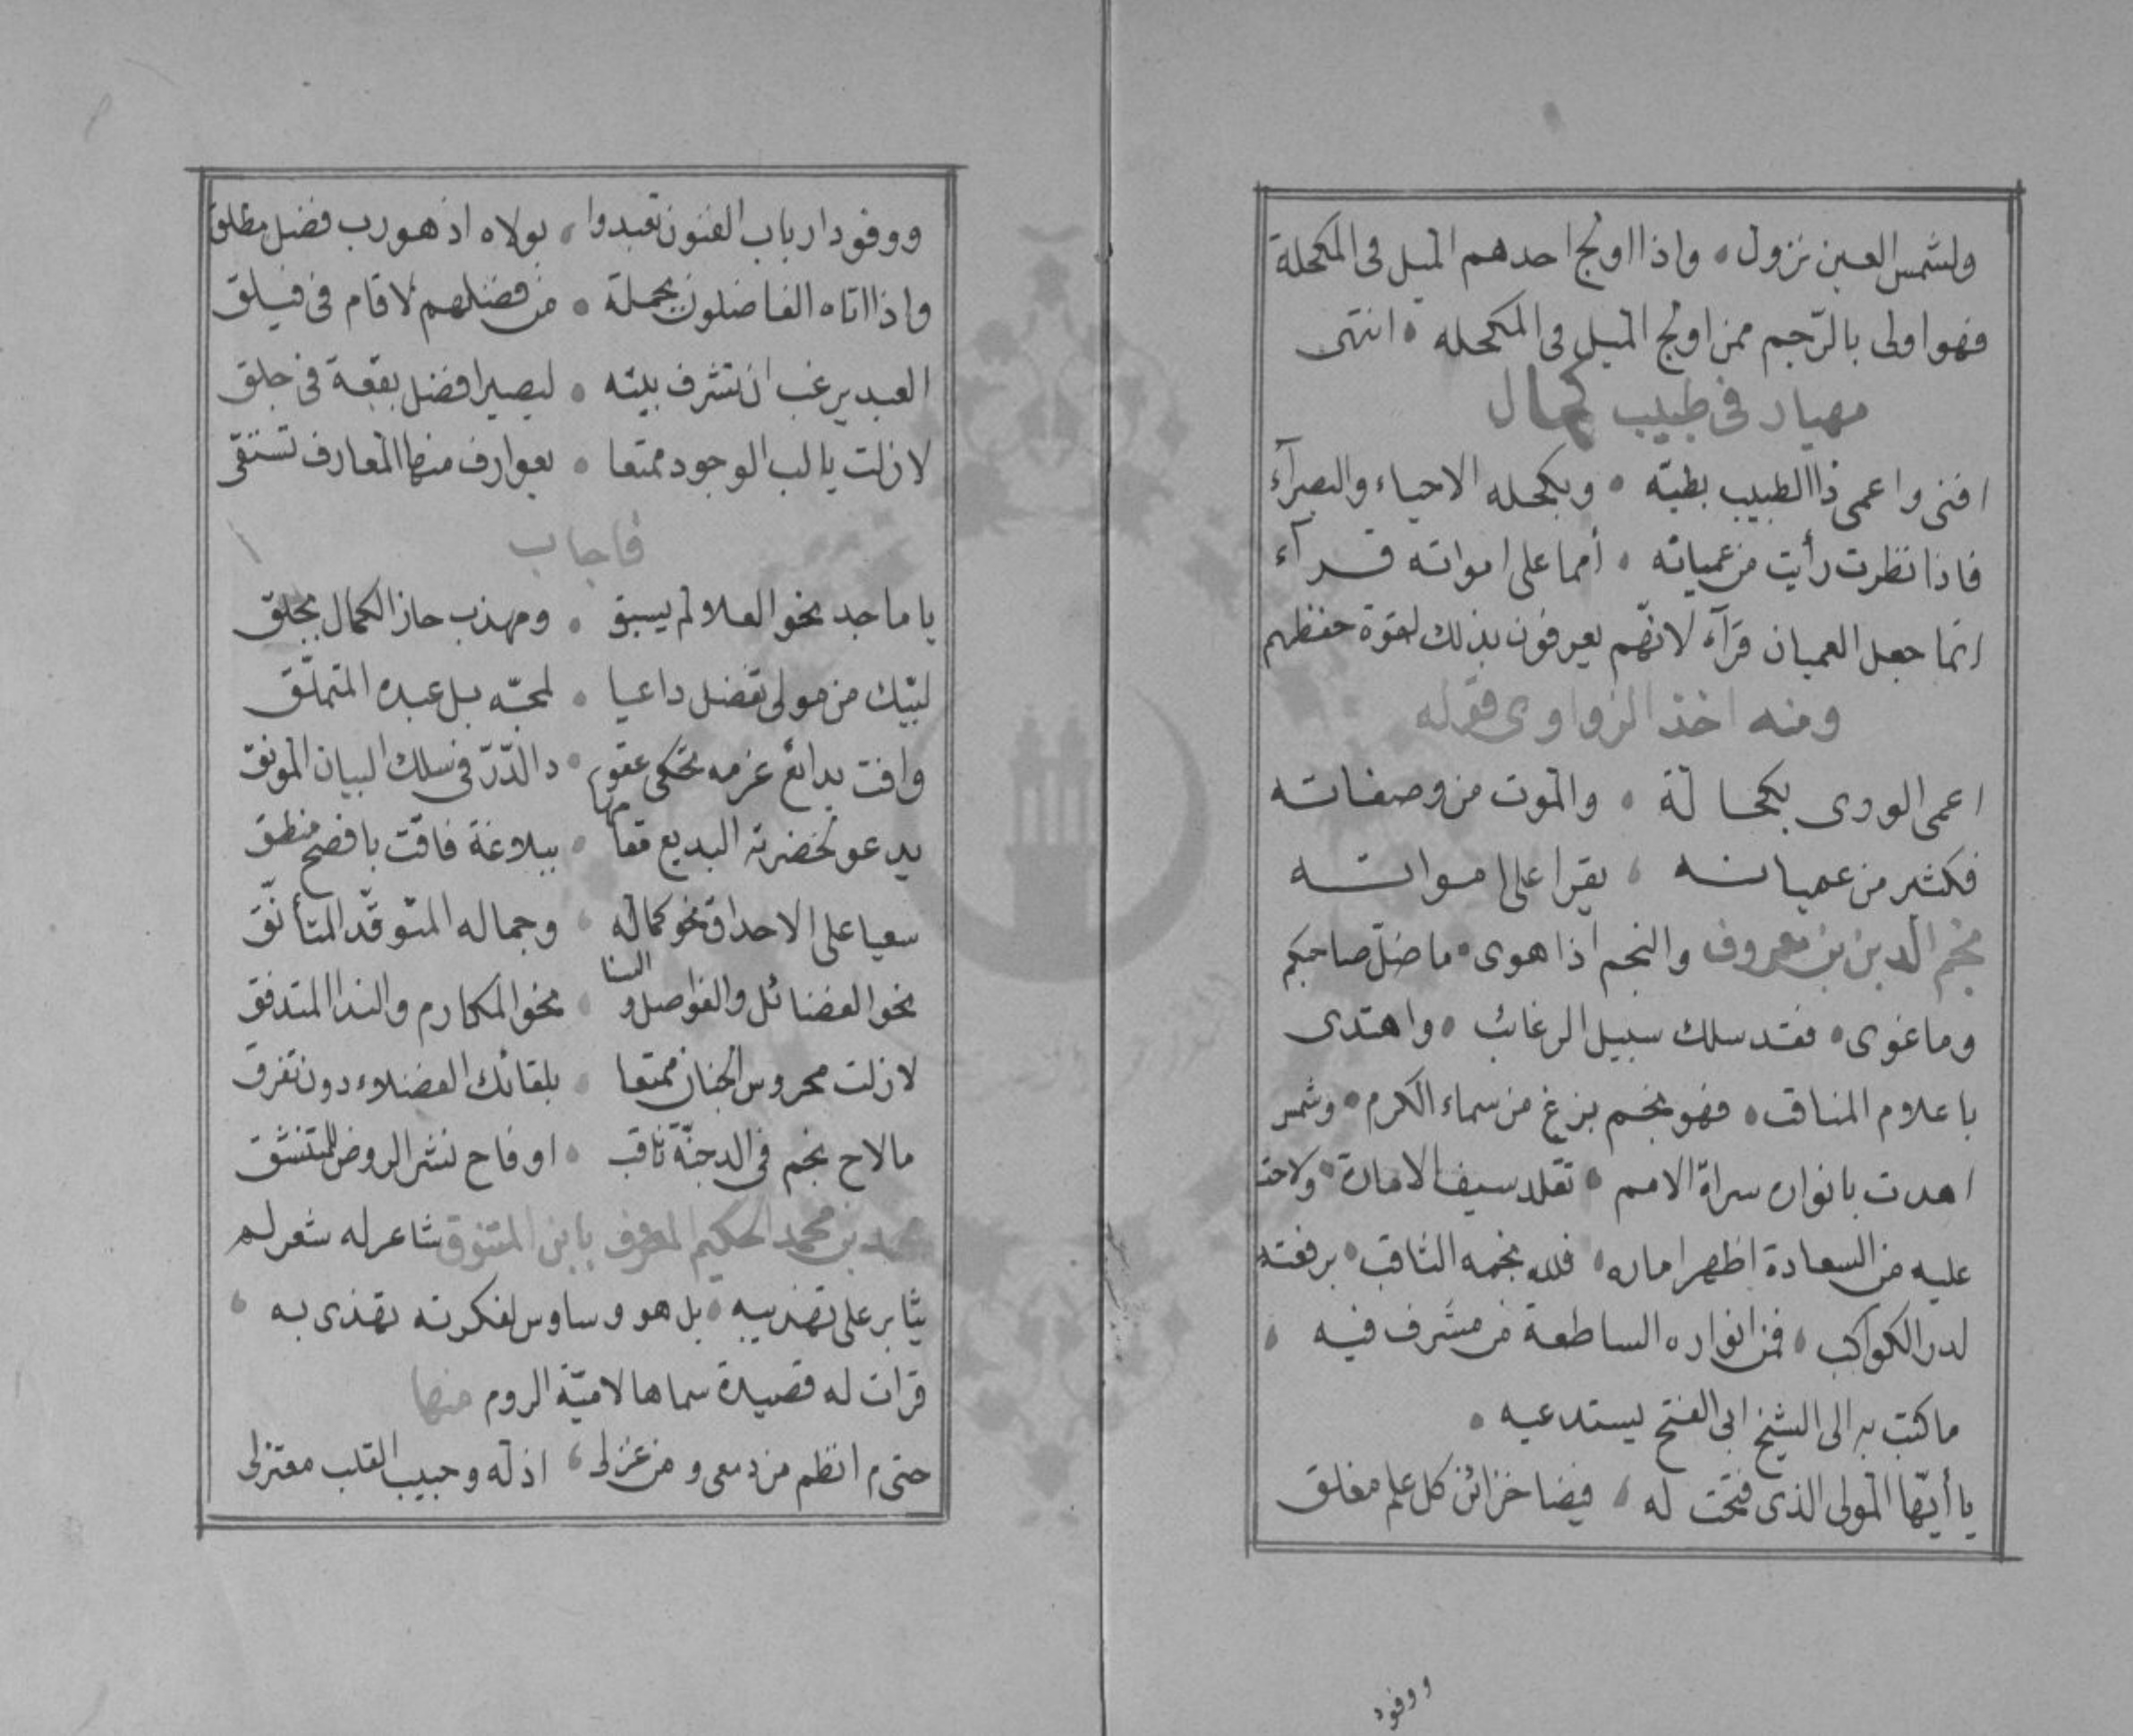 ولشمس العين نزول ، واذا اولج احدهم الميل فى المكحلة
فهو اولى بالرّجم ممن اولج الميل فى المكحله ، انتهى
مهيار فى طبيب كحال
افنى واعمى ذا الطبيب بطبّه ، وبكحله الاحياء والبصرآء
فاذا نظرت رأيت من عميانه ، أمما على امواته قرآء
انما جعل العميان قرآء لانهّم يعرفون بذلك لقوة حفظهم
ومنه اخذ الزواوى قوله
اعمى الورى بكحالة ، والموت من وصفاته
فكثير من عميانه ، يقرا على امواته
نجم الدين بن معروف والنجم اذا هوى ، ما ضلّ صاحبكم
وما غوى ، فقد سلك سبيل الرغائب ، واهتدى
باعلام المناقب ، فهو نجم بزغ من سماء الكرم ، وشمس
اهدت بانواره سراة الامم ، تقلد سيف الامارة ، ولاحت
عليه من السعادة اظهر اماره ، فلله نجمه الثاقب ، برفعته
لدر الكواكب ، فمن انواره الساطعة من مشرف فيه ،
ما كتب به الى الشيخ ابى الفتح يستدعيه ،
يا أيّها المولى الذى فتحت له ، فيضا خزائن كل علم مغلق
ووفود
ووفود ارباب الفنون تعبدوا ، بولاه اذ هو رب فضل مطلق
واذا اتاه الفاضلون بجملة ، من فضلهم لاقام فى فيلق
العبد يرغب ان تشرف بيته ، ليصير افضل بقعة فى جلق
لازلت يا لب الوجود ممتعا ، بعوارف منها المعارف تستقى
فاجاب
يا ماجد نحو العلا لم يسبق ، ومهذب حاز الكمال بجلق
لبيّك من مولى تفضل داعيا ، لمحبّه بل عبده المتملّق
وافت بدائع عزمه تحكى عقو ، د الدّرّ فى سلك البيان المونق
يدعو لحضرته البديع مقامها ، ببلاغة فاقت بافصح منطق
سعيا على الاحداق نحو كماله ، وجماله المتوقّد المتأنّق
نحو الفضائل والفواضل والسنا ، نحو المكارم والندا المتدفق
لازلت محروس الجناب ممتعا ، بلقائك الفضلاء دون تفرق
مالاح نجم فى الدجنّة ثاقب ، او فاح نشر الروض للمتنشق
محمد بن محمد الحكيم المعروف بابن المشنوق شاعر له شعر لم
يثابر على تهذيبه ، بل هو وساوس لفكرته تهذى به ،
قرات له قصيدة سماها لاميّة الروم منها
حتى م انظم من دمعى ومن غزلى ، اذ له وحبيب القلب معتزلى